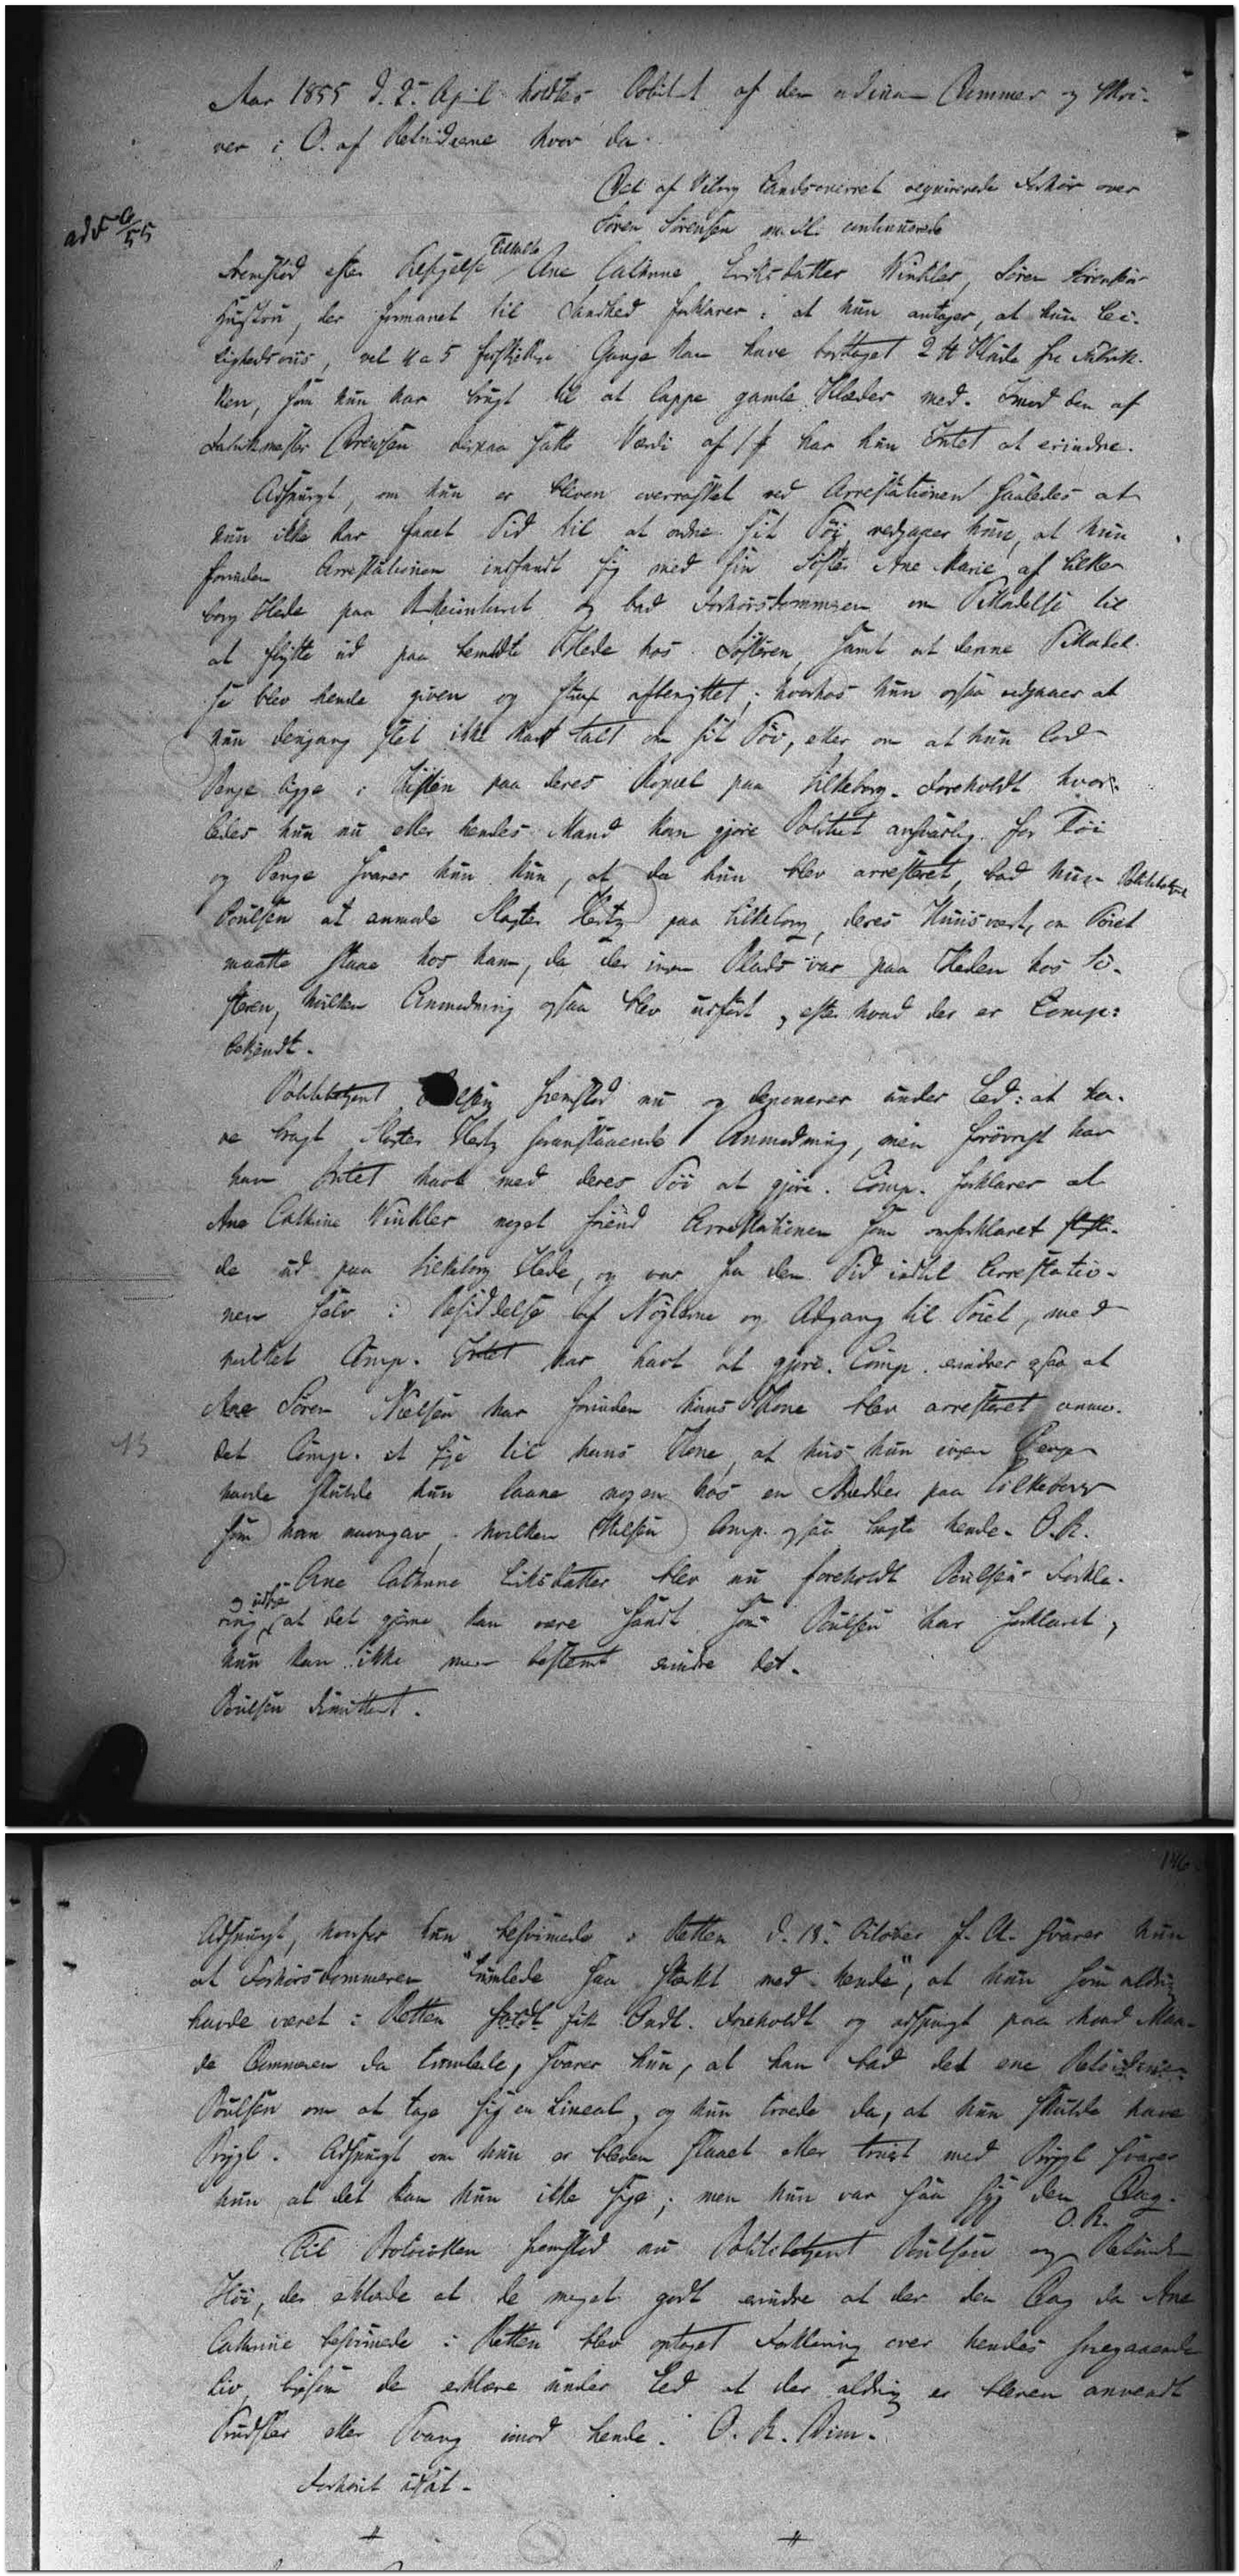 Aar 1855 d. 2. April holdtes Politiret af den ordinære Dommer og Skri-
ver i O. af Retsvidnerne hvor da
Det af Viborg Landsoverret reqvirerede Forhør over
Søren Sørensen m. Fl. continuerede
Fremstod efter Tilsigelse Ane Cathrine Eriksdatter Winkler, Søren Sørensens
Hustru, der formanet til Sandhed forklarer: at hun antager, at hun lei-
lighedsviis, vel 4 a 5 forskjellige Gange kan have borttaget 2 ℔ Klude fra Fabrik-
ken, som hun har brugt til at lappe gamle Klæder med. Imod den af
Fabrikmester Drewsen derpaa satte Værdi af 1 ꝑ har hun Intet at erindre.
Adspurgt, om hun er bleven overrasket ved Arrestationen saaledes at
hun ikke har faaet Tid til at ordne sit Töi, vedgaaer hun, at hun
forinden Arrestationen indfandt sig med sin Söster Ane Marie af Silke-
borg Hede paa Contoiret og bad Forhörsdommeren om Tilladelse til
at flytte ud paa bemeldte Hede hos Sösteren, samt at denne Tilladel-
se blev hende given og strax afbenyttet; hvorhos hun ogsaa vedgaaer at
hun dengang slet ikke havt talt om sit Töi, eller om at hun lod
Penge ligge i Kisten paa deres Bopæl paa Silkeborg. Foreholdt hvor-
ledes hun nu eller hendes Mand kan gjøre Politiet ansvarlig for Töi
og Penge svarer hun kun, at da hun blev arresteret, bad hun Politibetjent
Poulsen at anmode Slagter Hertz paa Silkeborg, deres Huusvært, om Töiet
maatte staae hos ham, da der ingen Plads var paa Heden hos Sö-
steren, hvilken Anmodning ogsaa blev udført, efter hvad der er Comp:
bekjendt.
Politibetjent Poulsen fremstod nu og deponerer under Eed: at ha-
ve bragt Slagter Hertz foranstaaende Anmodning, men forövrigt har
han Intet havt med deres Töi at gjöre. Comp. forklarer at
Ane Cathrine Winkler noget forind Arrestationen som omforklaret flytte-
de ud paa Silkeborg Hede, og var fra den Tid indtil Arrestatio-
nen selv i Besiddelse af Nöglerne og Adgang til Töiet, med
hvilket Comp. Intet har havt at gjöre. Comp. erindrer ogsaa at
Søren Nielsen har forinden hans Kone blev arresteret anmo-
det Comp. at sige til hans Kone, at hvis hun ingen Penge
havde skulde hun laane nogen hos en Snedker paa Silkeborg
som han navngav, hvilken Hilsen Comp. ogsaa bragte hende. O. R.
Ane Cathrine Eriksdatter blev nu foreholdt Poulsens Forkla-
ring, at det gjerne kan være sandt som Poulsen har forklaret,
hun kan ikke mere bestemt erindre det.
Poulsen dimitteret.
Adspurgt, hvorfor hun besvimede i Retten d. 18. October f. A. svarer hun
at Forhörsdommeren "tumlede saa stærkt med hende", at hun som aldrig
havde været i Retten fik Ondt. Foreholdt og adspurgt paa hvad Maa-
de Dommeren da tumlede, svarer hun, at han bad det ene Retsvidne
Poulsen om at tage sig en Lineal, og hun troede da, at hun skulde have
Prygl. Adspurgt om hun er bleven slaaet eller truet med Prygl svarer
hun at det kan hun ikke sige; men hun var saa syg den Dag.
O. R.
Til Protocollen fremstod nu Politibetjent Poulsen og Retsvidne
Höi, der erklærede at de meget godt erindre at der den Dag da Ane
Cathrine besvimede i Retten blev optaget Forklaring over hendes foregaaende
Liv, ligesom de erklære under Eed at der aldrig er bleven anvendt
Trudsler eller Tvang imod hende. O. R. Dim.
Forhöret udsat.